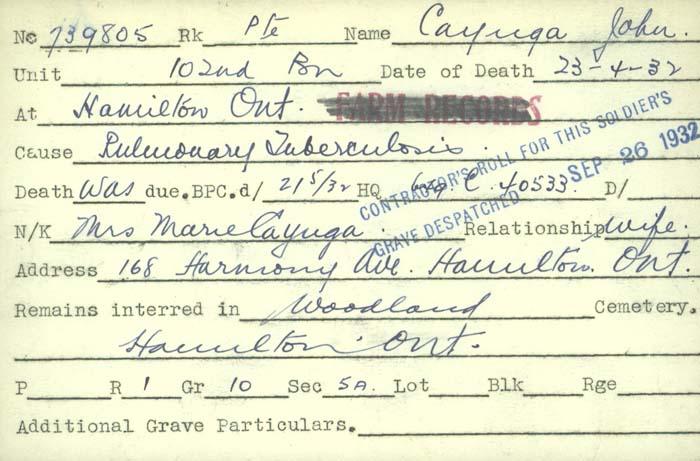 No 739805 Rk Pte Name Cayuga John.
Unit 102nd Bn Date of Death 23-4-32
At Hamilton Ont. FARM RECORDS
Cause Pulmonary Tuberculosis.
Death was due. BPC.d/ 21/5/32 HQ 649 C. 40533 D/
CONTRACTOR'S ROLL FOR THIS SOLDIER'S
GRAVE DESPATCHED SEP 26 1932
N/K Mrs Marie Cayuga. Relationship wife.
Address 168 Harmony Ave. Hamilton. Ont.
Remains interred in Woodland Cemetery.
Hamilton. Ont.
P R 1 Gr 10 Sec 5A. Lot Blk Rge
Additional Grave Particulars.